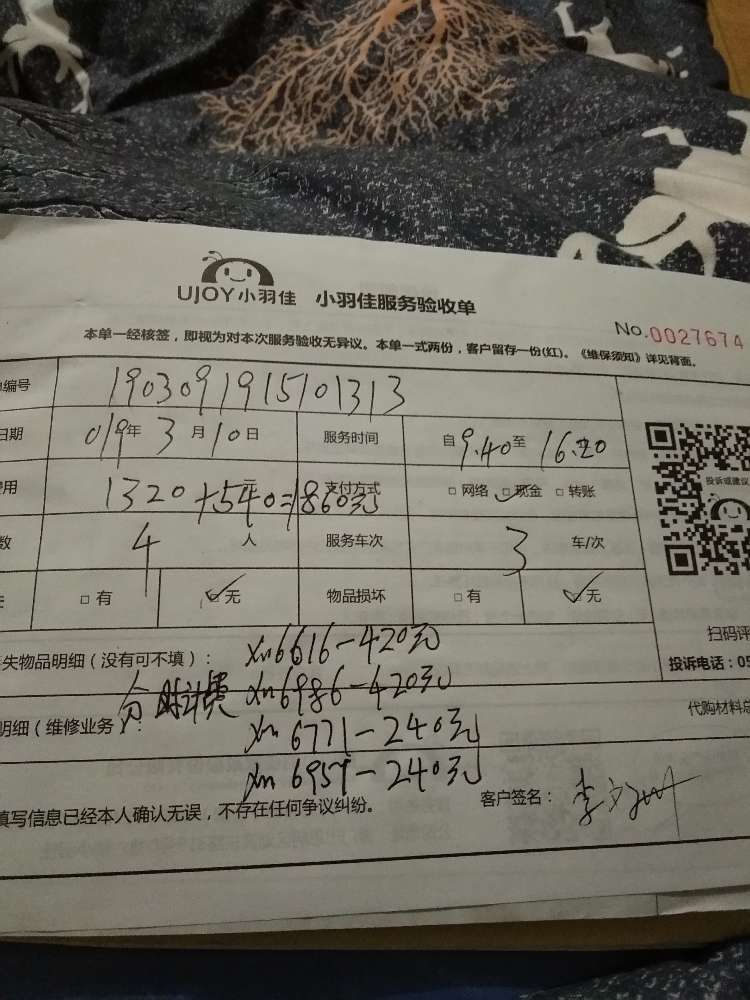 UJOY小羽佳 小羽佳服务验收单
No.0027674
本单一经核签，即视为对本次服务验收无异议。本单一式两份，客户留存一份(红)。《维保须知》详见背面。
编号 1903091915101313
日期 019年3月10日 服务时间 自9.40至16.20
用 1320+540=1860元 支付方式 □网络 ☑现金 □转账
数 4人 服务车次 3车/次
□有 ☑无 物品损坏 □有 ☑无
投诉或建议
扫码评
投诉电话：05
失物品明细（没有可不填）： xm6616-420元
分时计费 xm6986-420元
明细（维修业务）： xm6771-240元
代购材料总
xm6957-240元
填写信息已经本人确认无误，不存在任何争议纠纷。 客户签名： 李